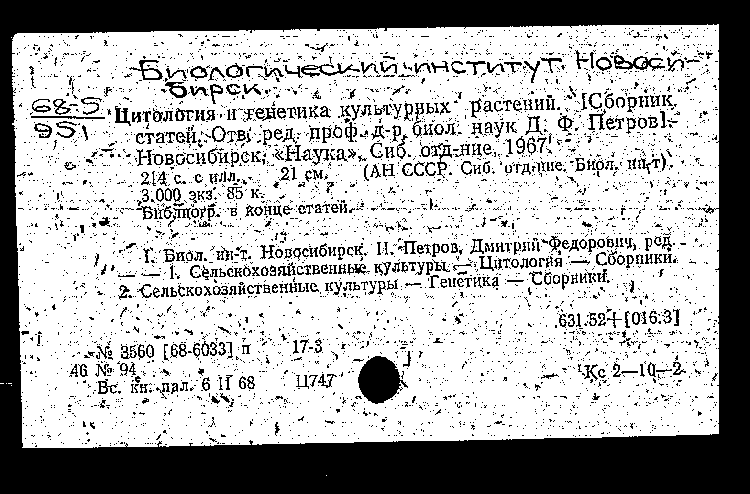 Биологический институт. Новоси-
бирск.
68-5
951
Цитология и генетика культурных растений. [Сборник
статей. Отв. ред. проф. д-р биол. наук Д. Ф. Петров].
Новосибирск, «Наука», Сиб. отд-ние, 1967.
214 с. с илл. 21 см. (АН СССР. Сиб. отд-ние. Биол. ин-т).
3.000 экз. 85 к.
Библиогр. в конце статей.
I. Биол. ин-т. Новосибирск. II. Петров, Дмитрий Федорович, ред.
— — 1. Сельскохозяйственные культуры — Цитология — Сборники.
2. Сельскохозяйственные культуры — Генетика — Сборники.
631.52+[016.3]
№ 3560 [68-6033] п 17-3
46 № 94
Вс. кн. пал. 6 II 68 11747 Кс 2—10—2